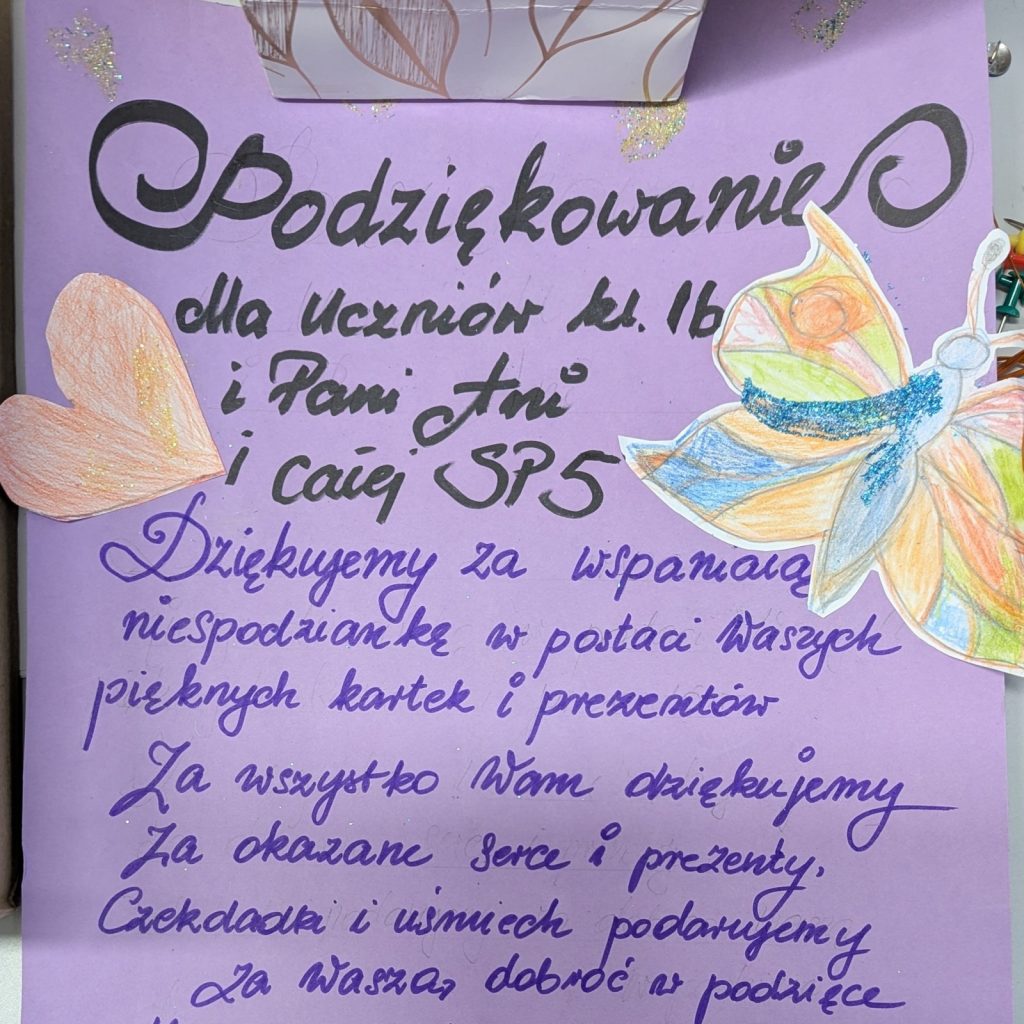 Podziękowanie
dla Uczniów kl. 1b
i Pani Ani
i całej SP5
Dziękujemy za wspaniałą
niespodziankę w postaci Waszych
pięknych kartek i prezentów
Za wszystko Wam dziękujemy
Za okazane serce i prezenty,
Czekoladki i uśmiech podarujemy
za Waszą dobroć w podzięce